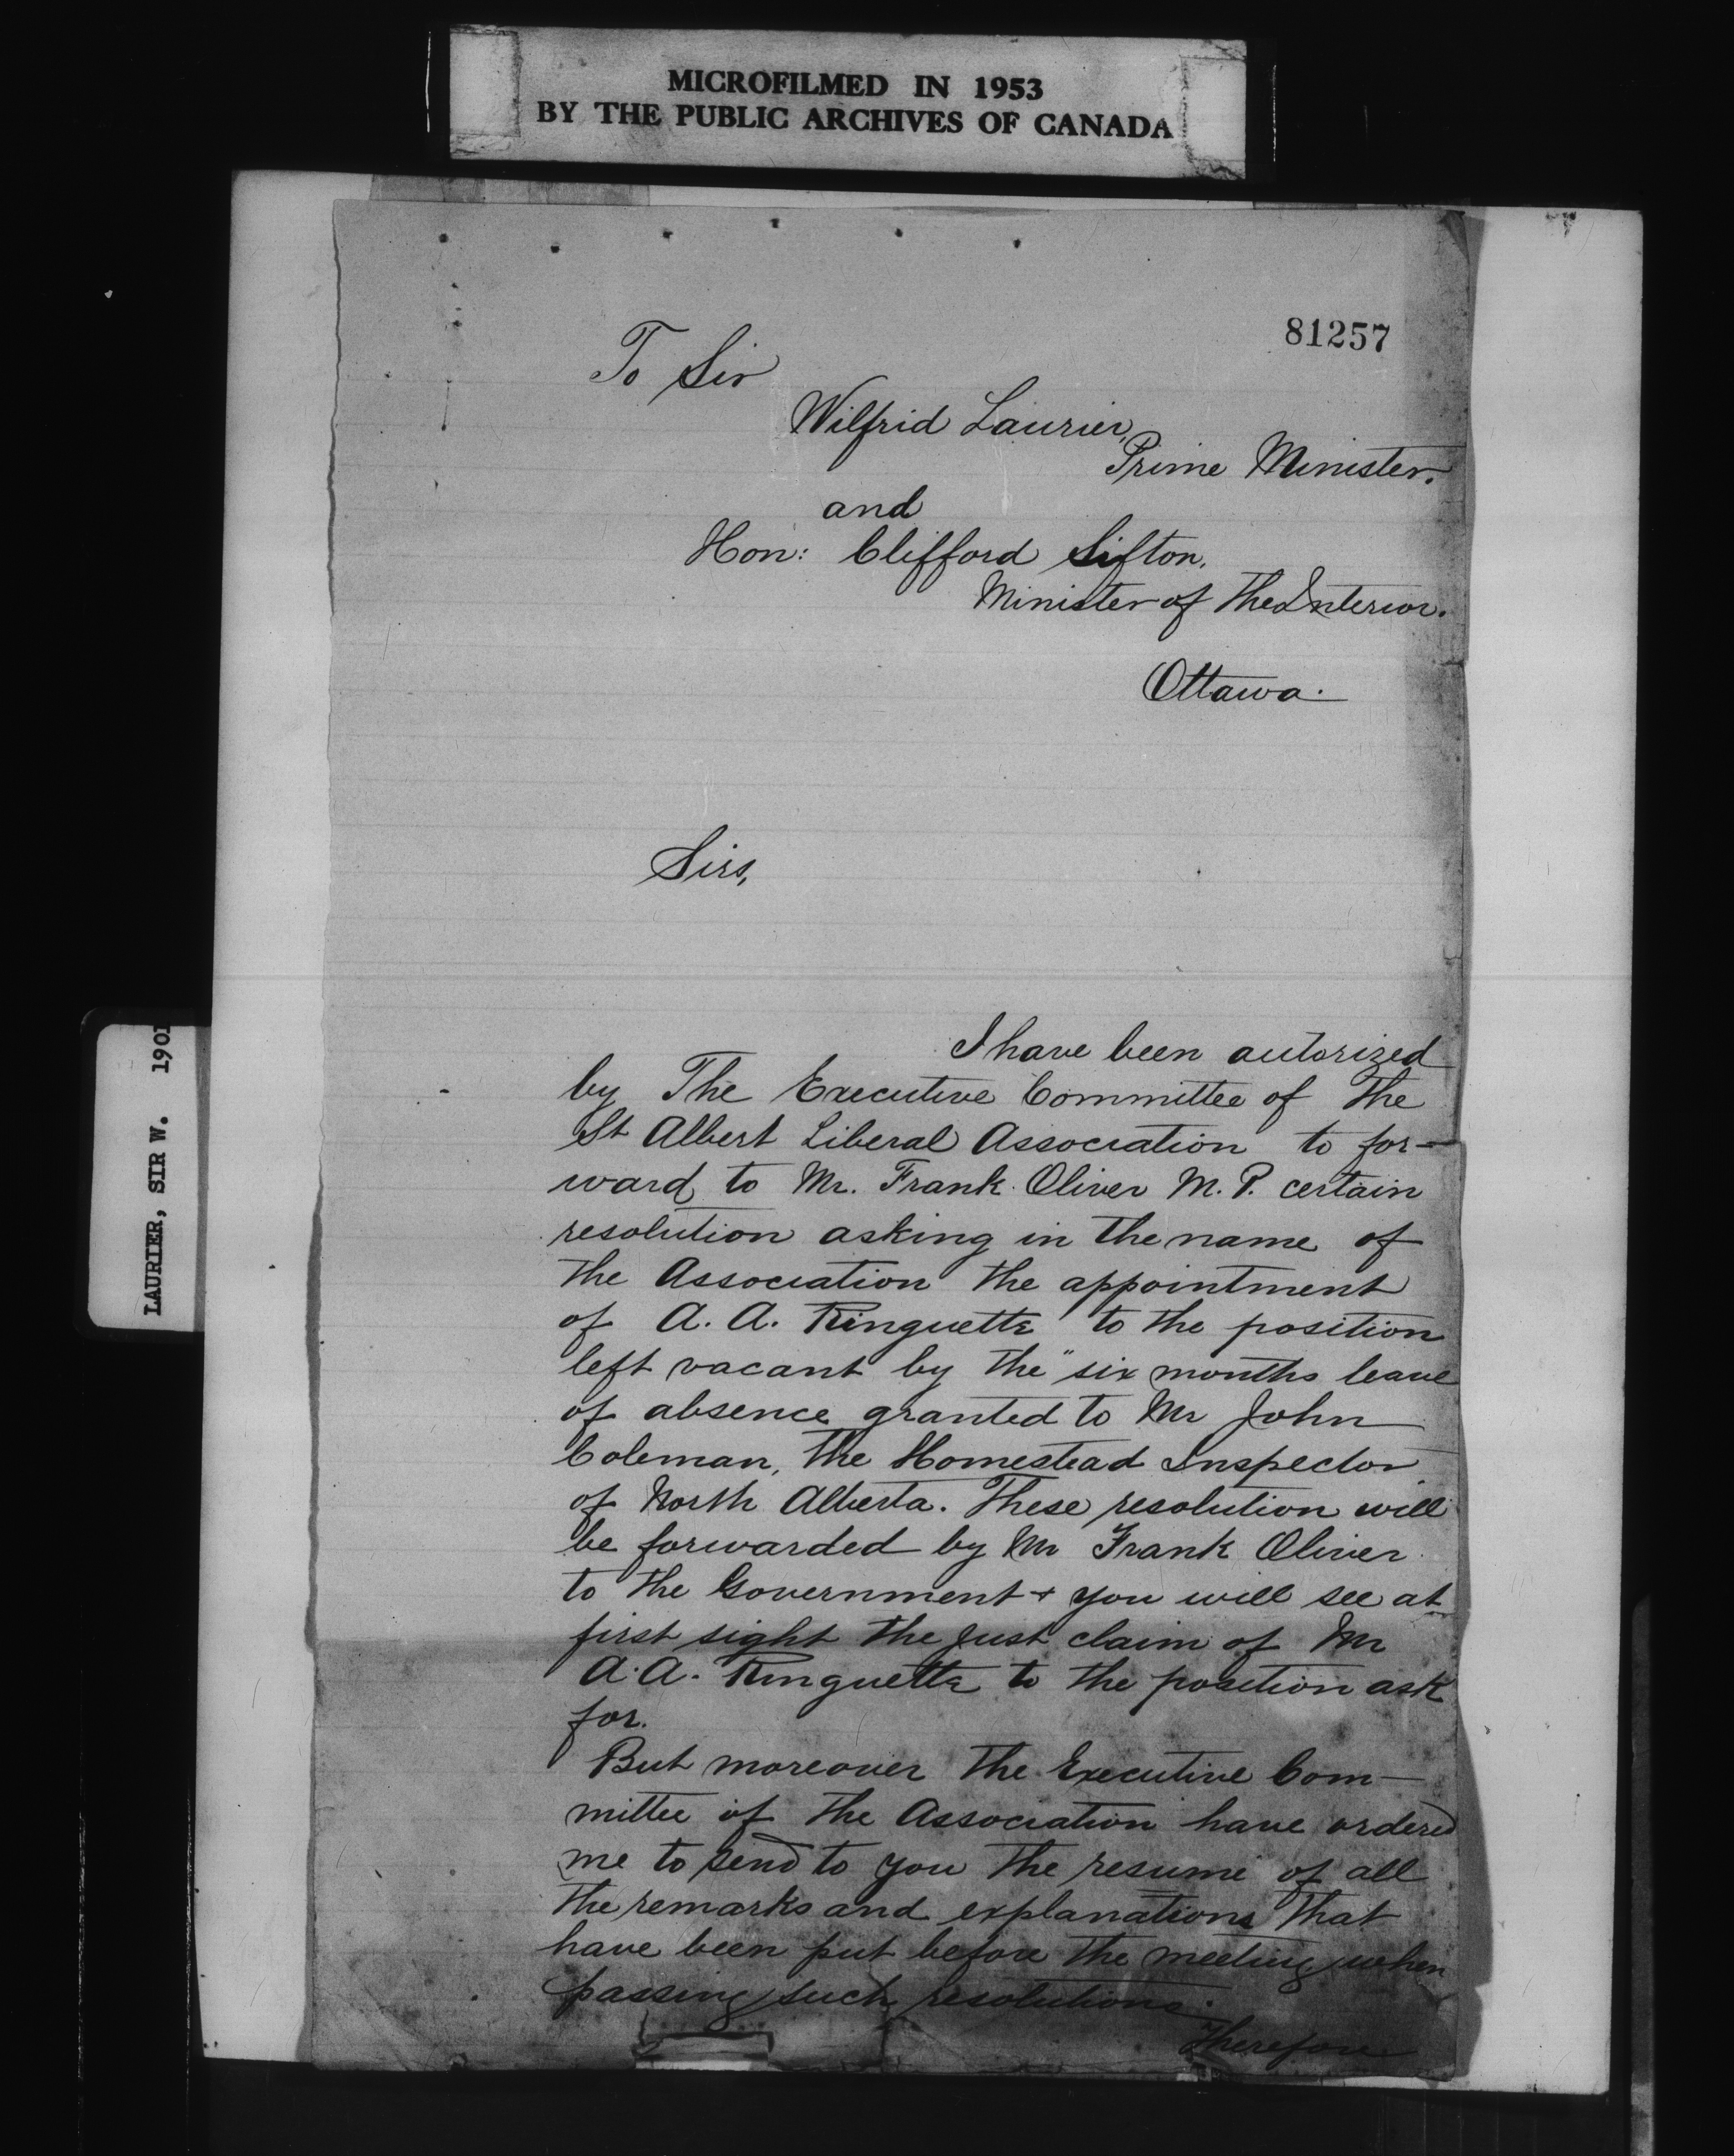 MICROFILMED IN 1953
BY THE PUBLIC ARCHIVES OF CANADA
81257
To Sir
Wilfrid Laurier,
Prime Minister.
and
Hon: Clifford Sifton.
Minister of The Interior.
Ottawa.
Sirs,
I have been autorized
by The Executive Committee of The
St Albert Liberal Association to for-
ward to Mr. Frank Oliver M. P. certain
resolution asking in the name of
the Association the appointment
of A. A. Ringuette to the position
left vacant by the "six months leave
of absence granted to Mr John
Coleman, The Homestead Inspector
of North Alberta. These resolution will
be forwarded by Mr Frank Oliver
to the Government + you will see at
first sight the just claim of Mr
A. A. Ringuette to the position ask
for.
But moreover the Executive Com-
mittee of the Association have ordered
me to send to you the resumé of all
the remarks and explanations that
have been put before the meeting when
passing such resolutions.
Therefore
LAURIER, SIR W. 1901